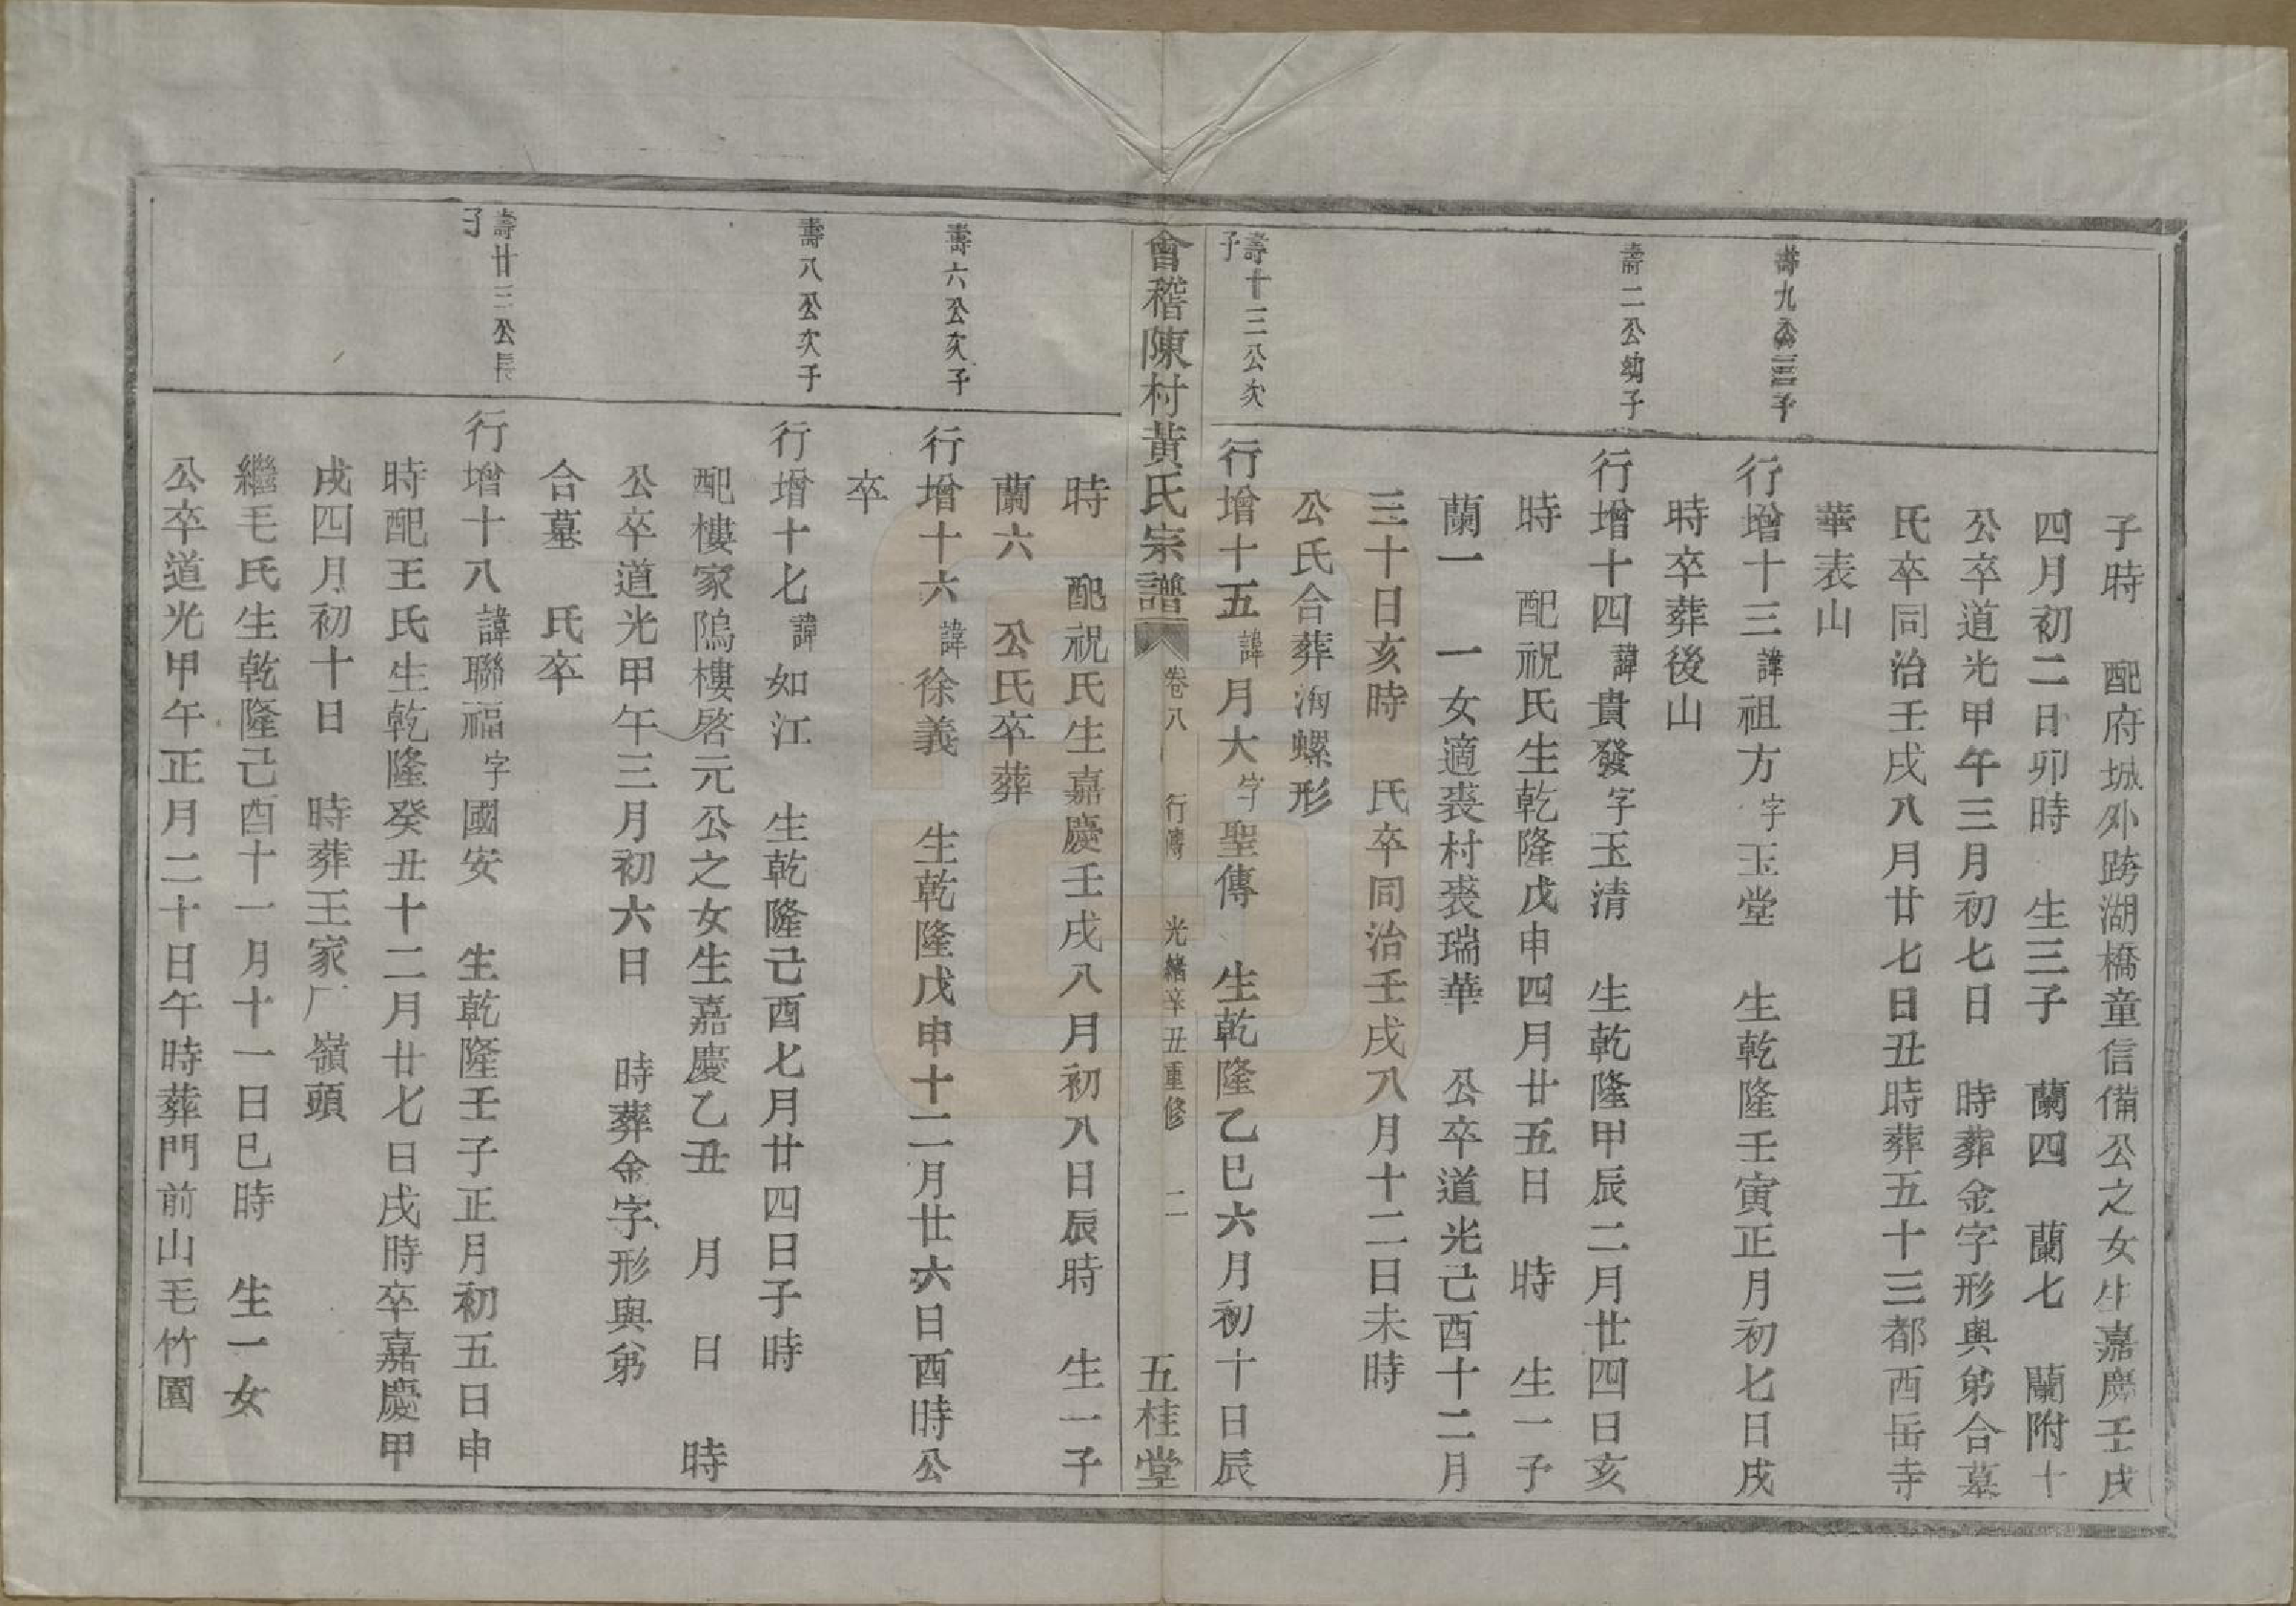 子時　配府城外跨湖橋童信備公之女生嘉慶壬戌
四月初二日卯時　生三子　蘭四　蘭七　蘭附十
公卒道光甲午三月初七日　時葬金字形與弟合墓
氏卒同治壬戌八月廿七日丑時葬五十三都西岳寺
華表山
壽九公三子
行增十三諱祖方字玉堂　生乾隆壬寅正月初七日戌
時卒葬後山
壽二公幼子
行增十四諱貴發字玉清　生乾隆甲辰二月廿四日亥
時　配祝氏生乾隆戊申四月廿五日　時　生一子
蘭一　一女適裘村裘瑞華　公卒道光己酉十二月
三十日亥時　氏卒同治壬戌八月十二日未時
公氏合葬海螺形
壽十三公次
子
行增十五諱月大字聖傳　生乾隆乙巳六月初十日辰
會稽陳村黃氏宗譜　卷八　行傳　光緒辛丑重修　二　五桂堂
時　配祝氏生嘉慶壬戌八月初八日辰時　生一子
蘭六　公氏卒葬
壽六公次子
行增十六諱徐義　生乾隆戊申十二月廿六日酉時公
卒
壽八公次子
行增十七諱如江　生乾隆己酉七月廿四日子時
配樓家隖樓啓元公之女生嘉慶乙丑　月　日　時
公卒道光甲午三月初六日　時葬金字形與弟
合墓　氏卒
壽廿三公長
子
行增十八諱聯福字國安　生乾隆壬子正月初五日申
時配王氏生乾隆癸丑十二月廿七日戌時卒嘉慶甲
戌四月初十日　時葬王家厂嶺頭
繼毛氏生乾隆己酉十一月十一日巳時　生一女
公卒道光甲午正月二十日午時葬門前山毛竹園